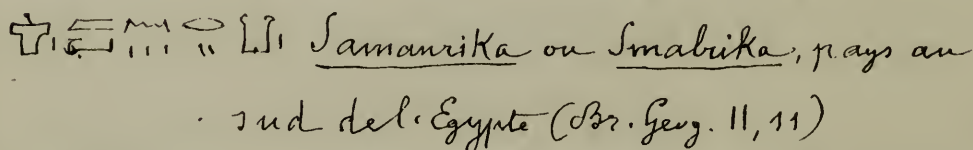 Samanrika ou Smabrika, pays au
sud de l'Egypte (Br. Geog. II, 11)